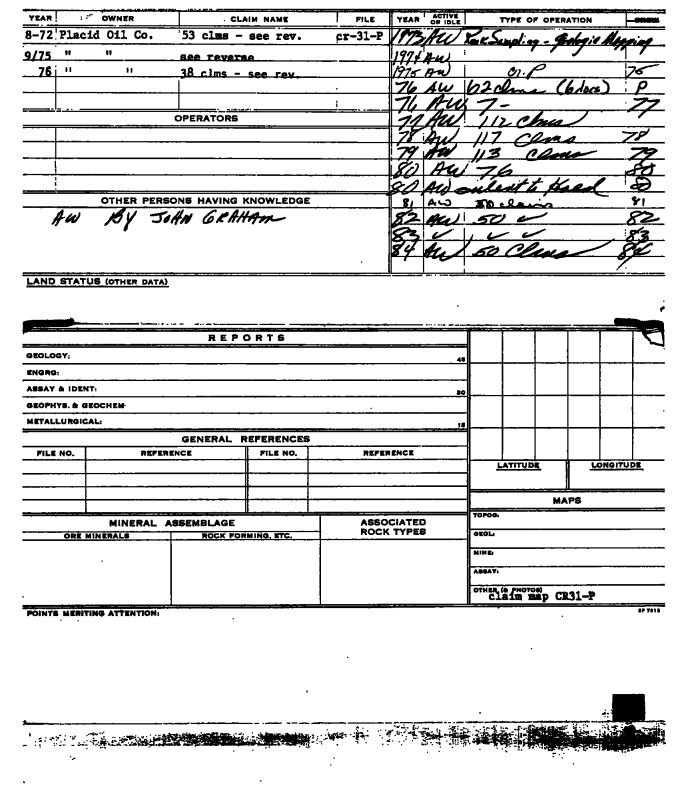 YEAR OWNER CLAIM NAME FILE YEAR ACTIVE OR IDLE TYPE OF OPERATION
8-72 Placid Oil Co. 53 clms - see rev. cr-31-P 1973 AW Rock Sampling - Geologic Mapping
9/75 " " see reverse 1974 AW
76 " " 38 clms - see rev. 1975 AW 75
76 AW 62 clms (6 docs) P
76 AW 7- 77
OPERATORS
77 AW 112 Clms
78 AW 117 Clms 78
79 AW 113 Clms 79
80 AW 76 80
80 AW 80
OTHER PERSONS HAVING KNOWLEDGE
81 AW 50 claims 81
AW BY JOHN GRAHAM 82 AW 50 ✓ 82
83 ✓ ✓ ✓ 83
84 AW 50 Clms 84
LAND STATUS (OTHER DATA)
REPORTS
GEOLOGY: 45
ENGRG:
ASSAY & IDENT: 30
GEOPHYS. & GEOCHEM
METALLURGICAL: 15
GENERAL REFERENCES
FILE NO. REFERENCE FILE NO. REFERENCE
LATITUDE LONGITUDE
MAPS
MINERAL ASSEMBLAGE ASSOCIATED ROCK TYPES
ORE MINERALS ROCK FORMING, ETC.
TOPOG:
GEOL:
MINE:
ASSAY:
OTHER (& PHOTOS)
claim map CR31-P
POINTS MERITING ATTENTION: SP 7015